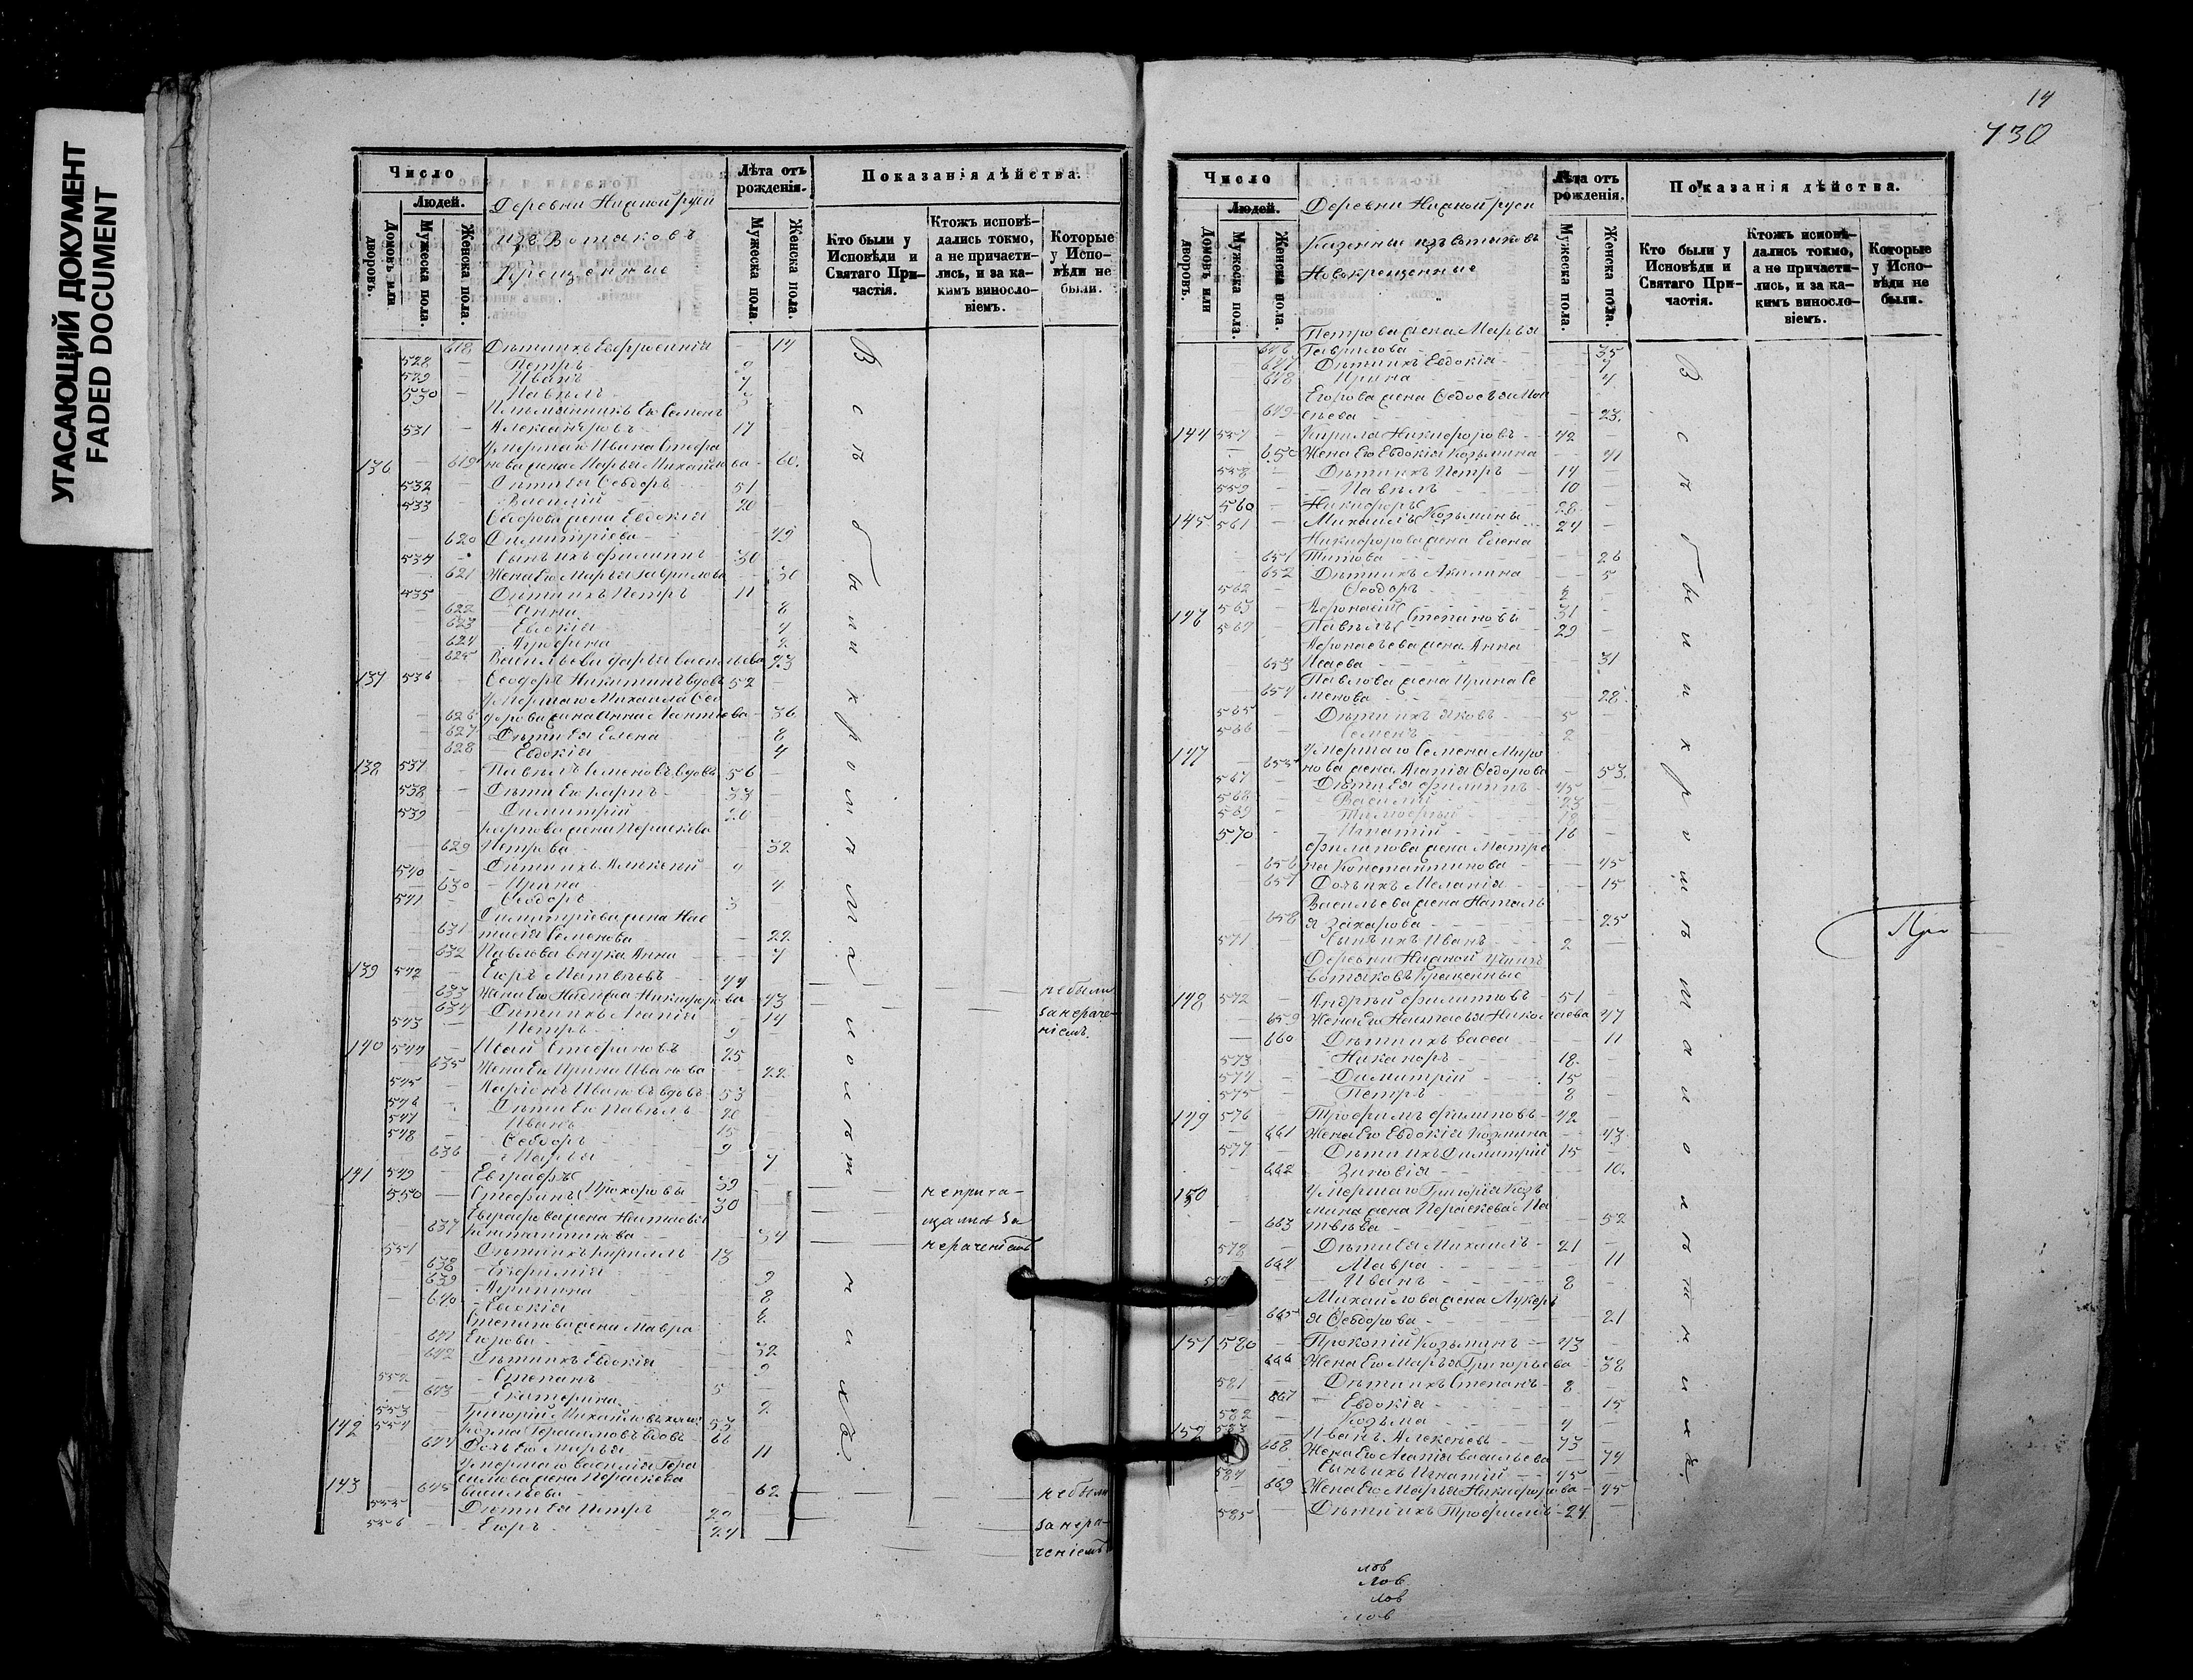 УГАСАЮЩИЙ ДОКУМЕНТ
FADED DOCUMENT
Число
Людей.
Домовъ или дворовъ.
Мужеска пола.
Женска пола.
Деревни Нижной руси
изъ Вотяковъ
Крещенные
Лѣта отъ рожденія.
Мужеска пола.
Женска пола.
Показанія дѣйства.
Кто были у Исповѣди и Святаго Причастія.
Ктожъ исповѣдались токмо, а не причастились, и за какимъ винословіемъ.
Которые у Исповѣди не были.
618 Дѣти ихъ Евфросинія 14
528 Петръ 9
529 Иванъ 7
530 Павелъ 3
Племянникъ Его Семенъ
531 Александровъ 17
Умершаго Ивана Стефа
136 619 нова жена Марья Михайлова 60.
532 Дѣти Ея Ѳеодоръ 51
533 Василій 20
Ѳеодорова жена Евдокія
620 Димитріева 49
534 Сынъ ихъ Филиппъ 30
621 Жена Его Марья Гаврилова 30
535 Дѣти ихъ Петръ 11
622 Анна 8
623 Евдокія 4
624 Агрофина 2
625 Васильева Дарья Васильева 23
137 536 Ѳеодоръ Никитинъ вдовъ 52
Умершаго Михаила Ѳео
626 дорова жена Анна 36
627 Дѣти Ея Елена 8
628 Евдокія 4
138 537 Павелъ Семеновъ вдовъ 56
538 Дѣти Его Карпъ 33
539 Димитрій 20
Карпова жена Параскева
629 Петрова 32
540 Дѣти ихъ Алексѣй 9
630 Ирина 4
541 Ѳеодоръ 3
Димитріева жена Нас
631 тасія Семенова 22
632 Павлова внука Анна 7
139 542 Егоръ Матвѣевъ 44
633 Жена Его Надежда Никифорова 43 небыли
634 Дѣти ихъ Агапія 14 за нераче-
543 Петръ 9 ніемъ.
140 544 Исай Стефановъ 25
635 Жена Его Ирина Иванова 22
545 Ларіонъ Ивановъ вдовъ 53
546 Дѣти Его Павелъ 20
547 Иванъ 15
548 Ѳеодоръ 9
636 Марья 7
141 549 Евграфъ 39
550 Стефанъ Прохоровы 30 неприча-
Евграфова жена Настасья щались за
637 Константинова 34 нераченіемъ
551 Дѣти ихъ Кириллъ 13
638 Евфимія 9
639 Агрипина 8
640 Евдокія
Степанова жена Мавра
641 Егорова 32
642 Дѣти ихъ Евдокія 9
552 Степанъ 5
643 Екатерина 2
553 Григорій Михайловъ 53
142 554 Козма Герасимовъ вдовъ 66
644 Дочь Его Марья 11
Умершаго Василія Гера
симова жена Параскева
143 645 Васильева 62 небыли
555 Дѣти Ея Петръ 20 за нера-
556 Егоръ 24 ченіемъ
Всѣ были кромѣ малолѣтныхъ
14
730
Число
Людей.
Домовъ или дворовъ.
Мужеска пола.
Женска пола.
Деревни Нижной руси
Казенные изъ вотяковъ
Новокрещенные
Лѣта отъ рожденія.
Мужеска пола.
Женска пола.
Показанія дѣйства.
Кто были у Исповѣди и Святаго Причастія.
Ктожъ исповѣдались токмо, а не причастились, и за какимъ винословіемъ.
Которые у Исповѣди не были.
Петрова жена Марья
646 Гаврилова 35
647 Дѣти ихъ Евдокія 7
648 Ирина 4
Егорова жена Ѳедосья Мои
649 сеева 23.
144 557 Кирила Никифоровъ 42
650 Жена Его Евдокія Козьмина 41
558 Дѣти ихъ Петръ 14
559 Павелъ 10
560 Никифоръ 28
145 561 Михаилъ Козьмины 24
Никифорова жена Елена
651 Титова 26
652 Дѣти ихъ Акилина 5
562 Ѳеодоръ 2
563 Афонасій 31
146 564 Павелъ Степановы 29
Афонасьева жена Анна
653 Исаева 31
Павлова жена Ирина Се
654 менова 28
565 Дѣти ихъ Яковъ 5
566 Семенъ 2
147 Умершаго Семена Миро
655 нова жена Агапія Ѳедорова 53.
567 Дѣти Ея Филиппъ 45
568 Василій 23
569 Тимоѳей 18
570 Игнатій 16
Филипова жена Матре
656 на Константинова 45
657 Дочь ихъ Меланія 15
Васильева жена Наталь
658 я Захарова 25
571 Сынъ ихъ Иванъ 2
Деревни Нижной Учи изъ
вотяковъ Крещенные
148 572 Андрей Филиповъ 51
659 Жена Его Настасья Николаева 47
660 Дѣти ихъ Васса 11
573 Никаноръ 18.
574 Димитрій 15
575 Петръ 8
149 576 Трофимъ Филиповъ 42
661 Жена Его Евдокія Козмина 43
577 Дѣти ихъ Димитрій 15
662 Зиновія 10.
150 Умершаго Григорія Коз
мина жена Параскева Ма
663 твѣева 52
578 Дѣти Ея Михаилъ 21
664 Мавра 11
579 Иванъ 8
Михайлова жена Лукерь
665 я Ѳеодорова 21
151 580 Прокопій Козьминъ 43
666 Жена Его Марья Григорьева 38
581 Дѣти ихъ Степанъ 8
667 Евдокія 15
582 Козьма 4
152 583 Иванъ Алексѣевъ 73
668 Жена Его Агапія Васильева 74
584 Сынъ ихъ Игнатій 45
669 Жена Его Марья Никифорова 45
585 Дѣти ихъ Трофимъ 24
Всѣ были кромѣ малолѣтныхъ
лов
лов
лов
лов